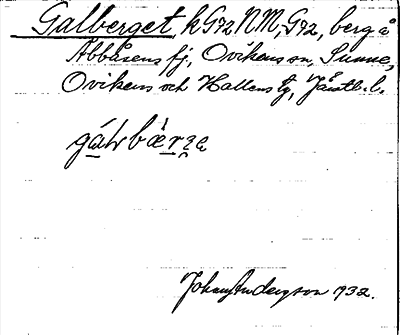 Galberget, k G92 NM, G92, berg å
Abbåsens fj, Ovikens sn, Sunne,
Ovikens och Hallens tg, Jämtl. l.
gáɫbæ̀rʒa
Johan Anderzson 1932.